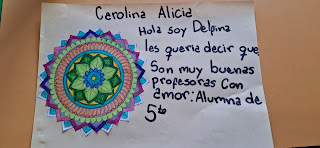 Carolina Alicia
Hola soy Delpina
les queria decir que
Son muy buenas
profesoras Con
amor: Alumna de
5to